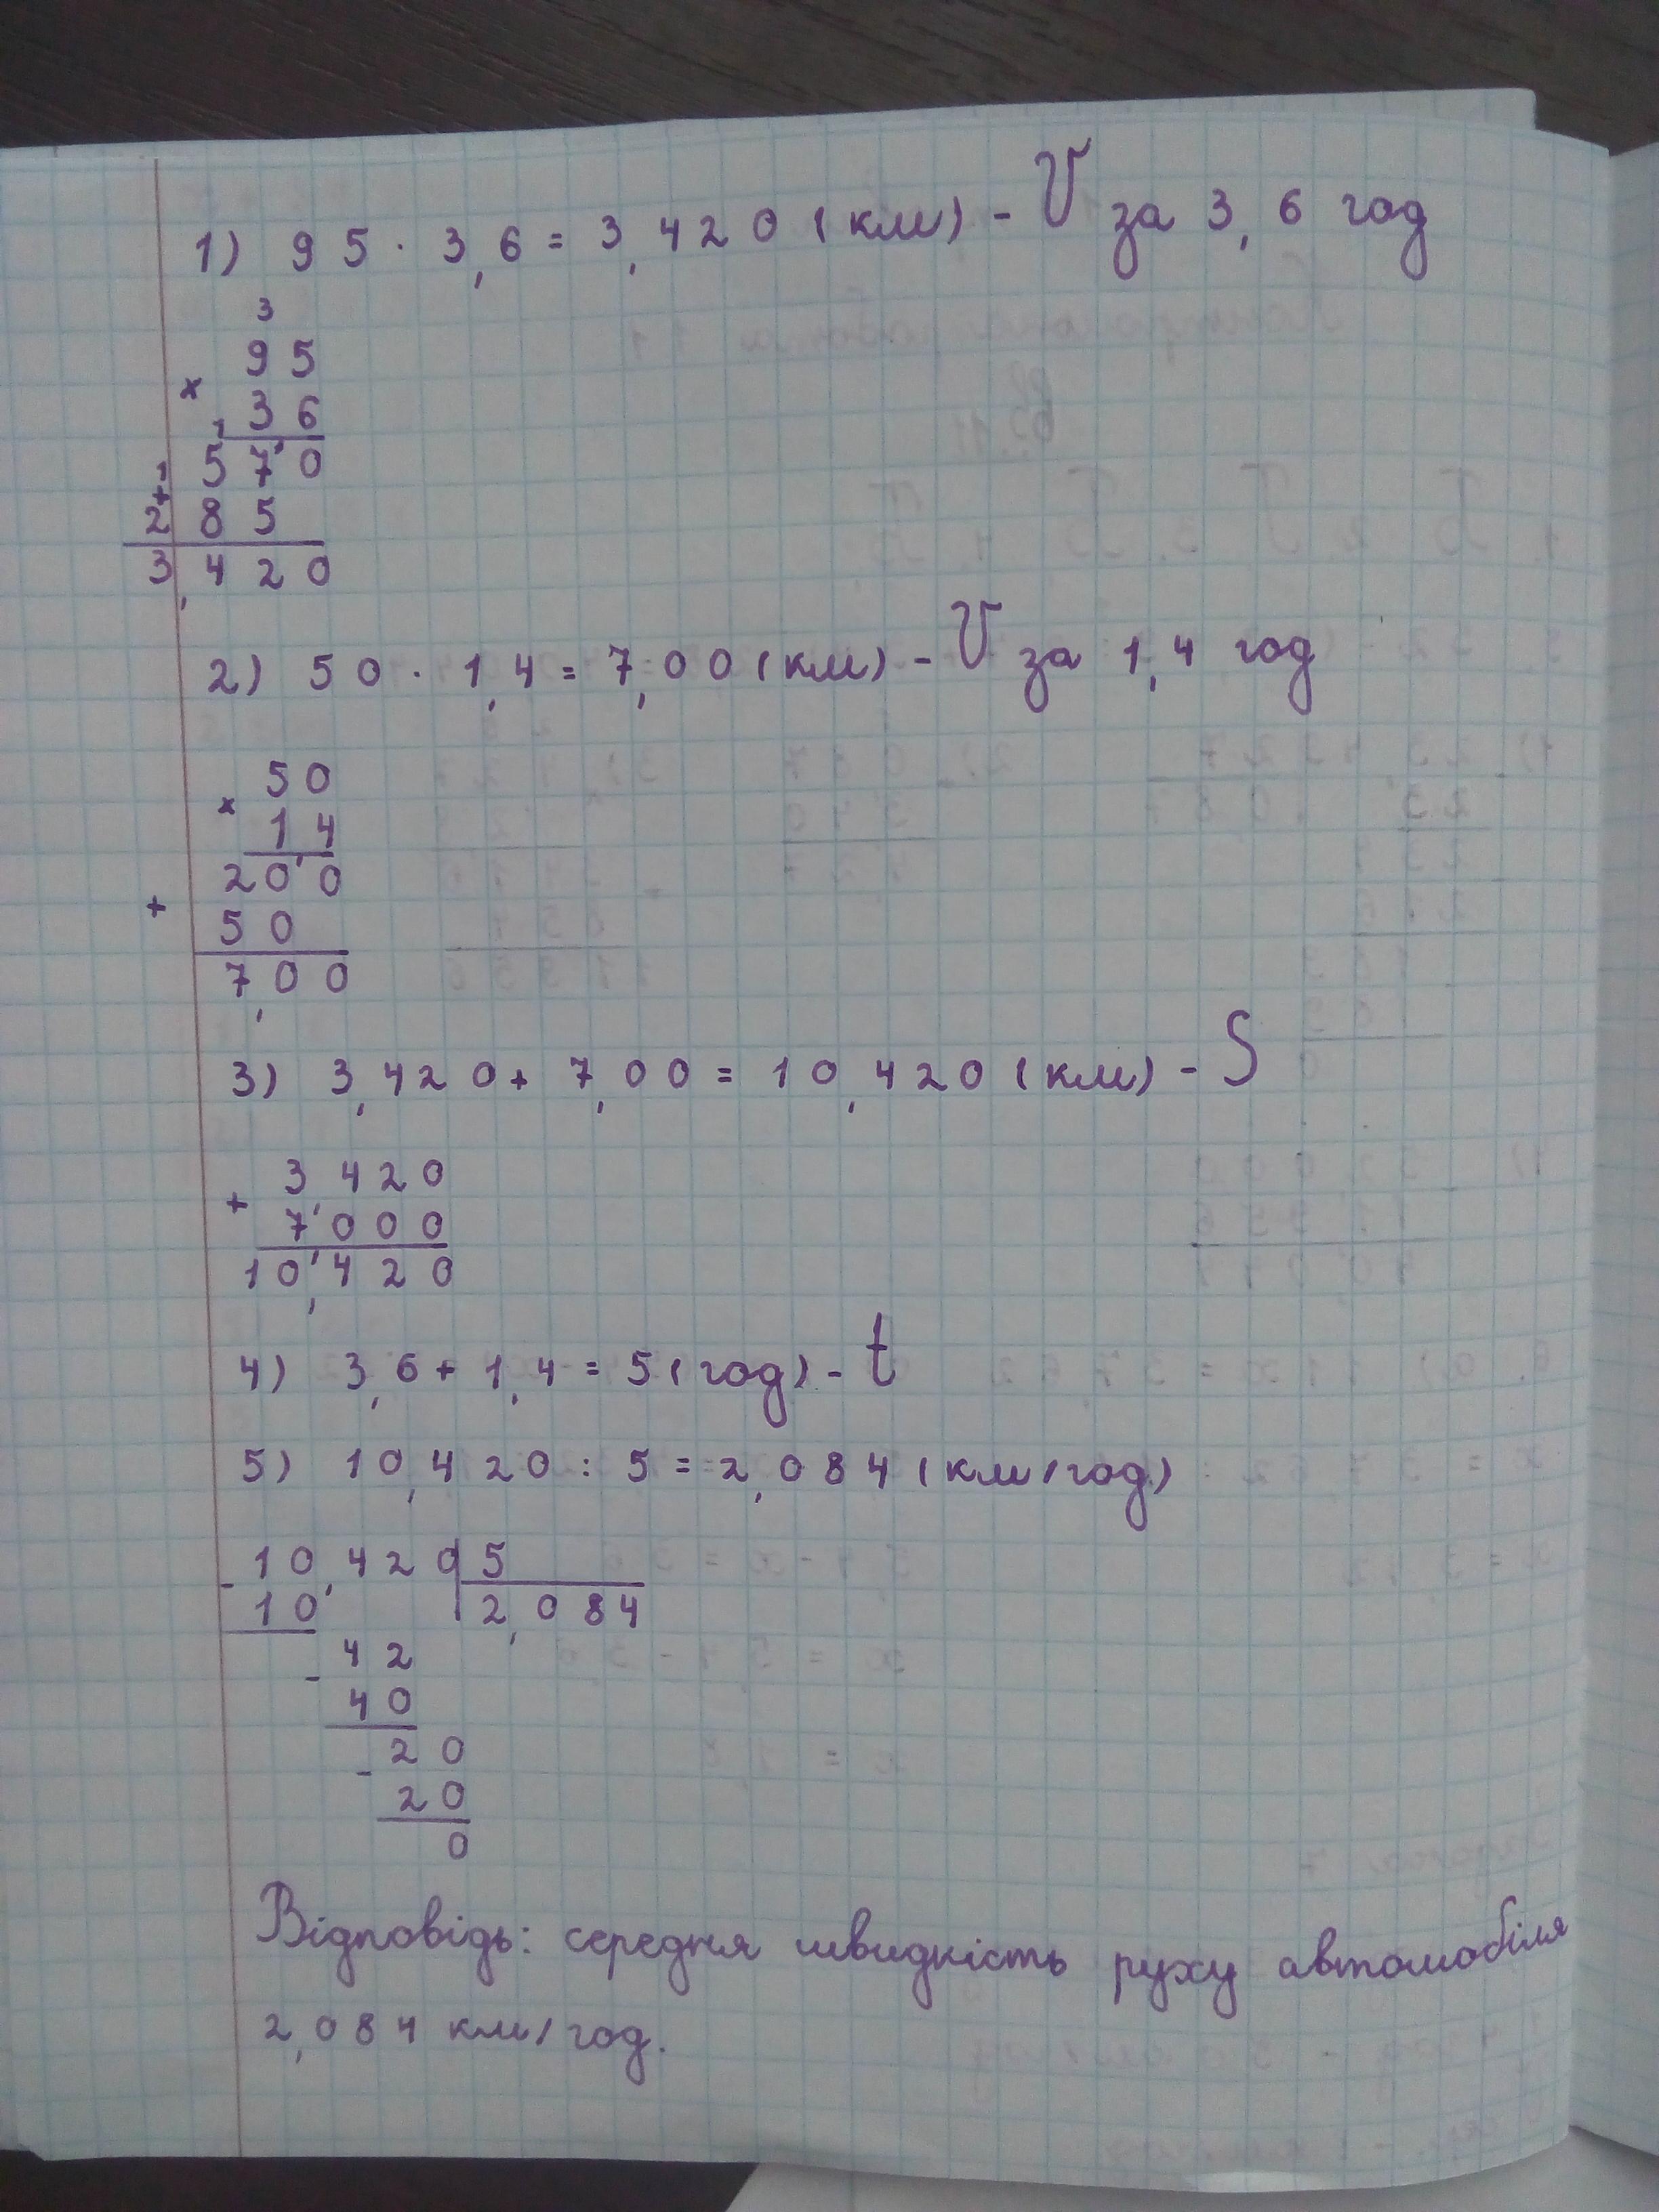 1) 95 · 3,6 = 3,420 (км) - V за 3,6 год
3
95
×
36
1
570
1
+
285
3,420
2) 50 · 1,4 = 7,00 (км) - V за 1,4 год
50
×
14
200
+
50
7,00
3) 3,420 + 7,00 = 10,420 (км) - S
3,420
+
7,000
10,420
4) 3,6 + 1,4 = 5 (год) - t
5) 10,420 : 5 = 2,084 (км/год)
- 10,420 | 5
10 | 2,084
- 42
40
- 20
20
0
Відповідь: середня швидкість руху автомобіля
2,084 км/год.